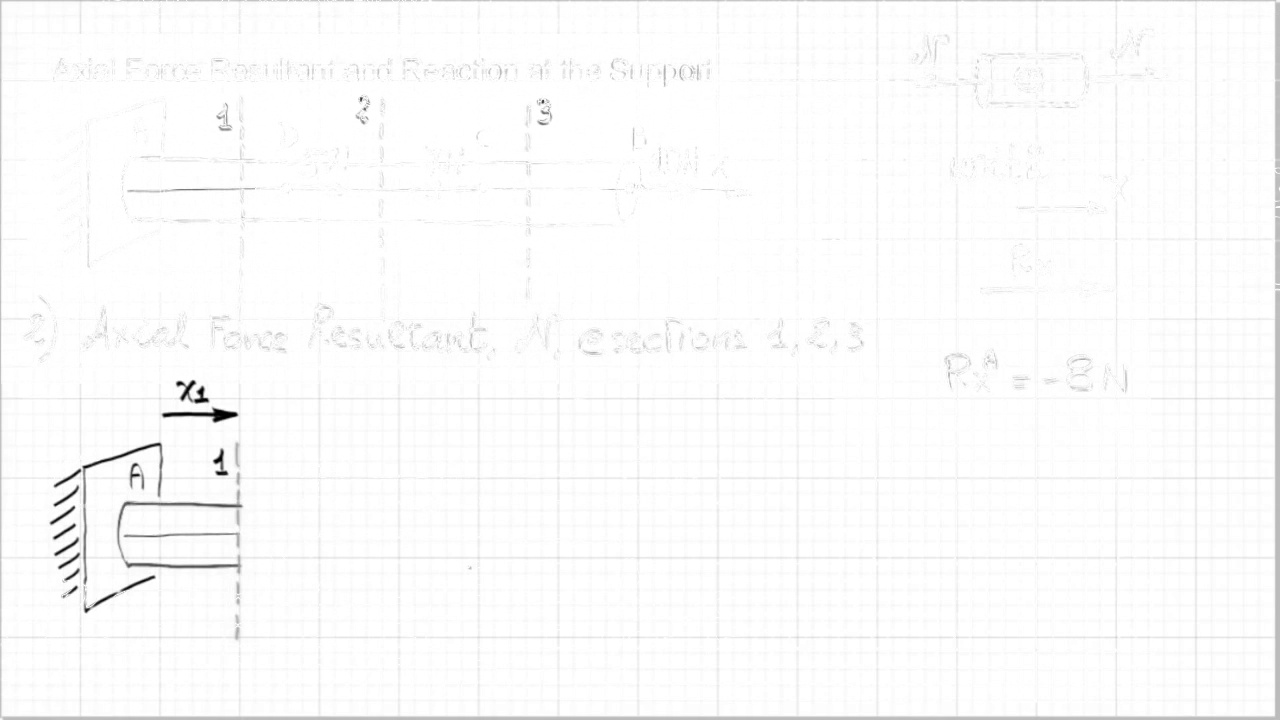 Axial Force Resultant and Reaction at the Support
N N
1 2 3
A D C B
10N x
x
Rx
2) Axial Force Resultant, N, @ sections 1, 2, 3
Rx^A = -8N
x1
1
A